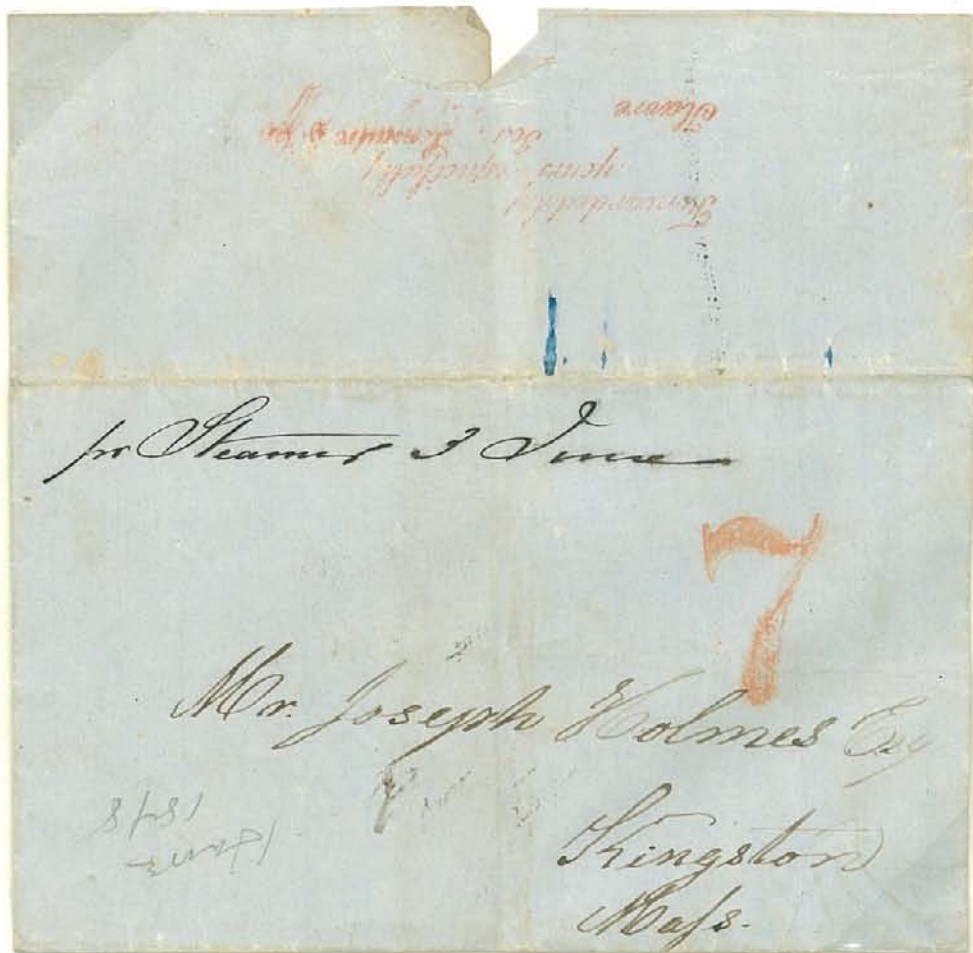 Forwarded by
yours respectfully
Havre
pr Steamer 3 June
7
Mr. Joseph Holmes Esq
Kingston
Mass.
1848